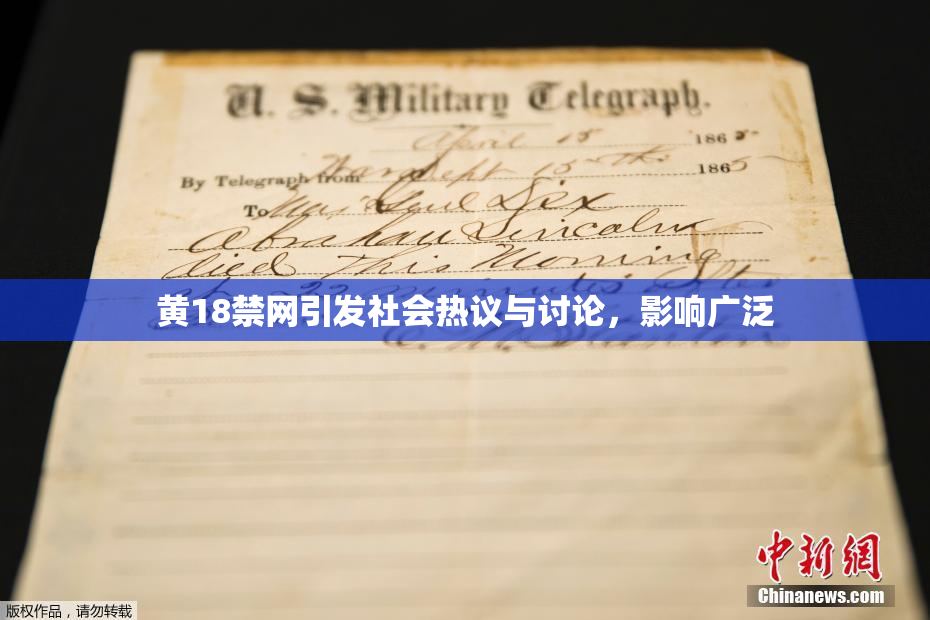 U. S. Military Telegraph.
April 15 1865
By Telegraph from War Dept 15th 1865
To Maj Genl Dix
Abraham Lincoln
died This Morning
at 22 minutes after
黄18禁网引发社会热议与讨论，影响广泛
E. M. Stanton
中新網
Chinanews.com
版权作品，请勿转载